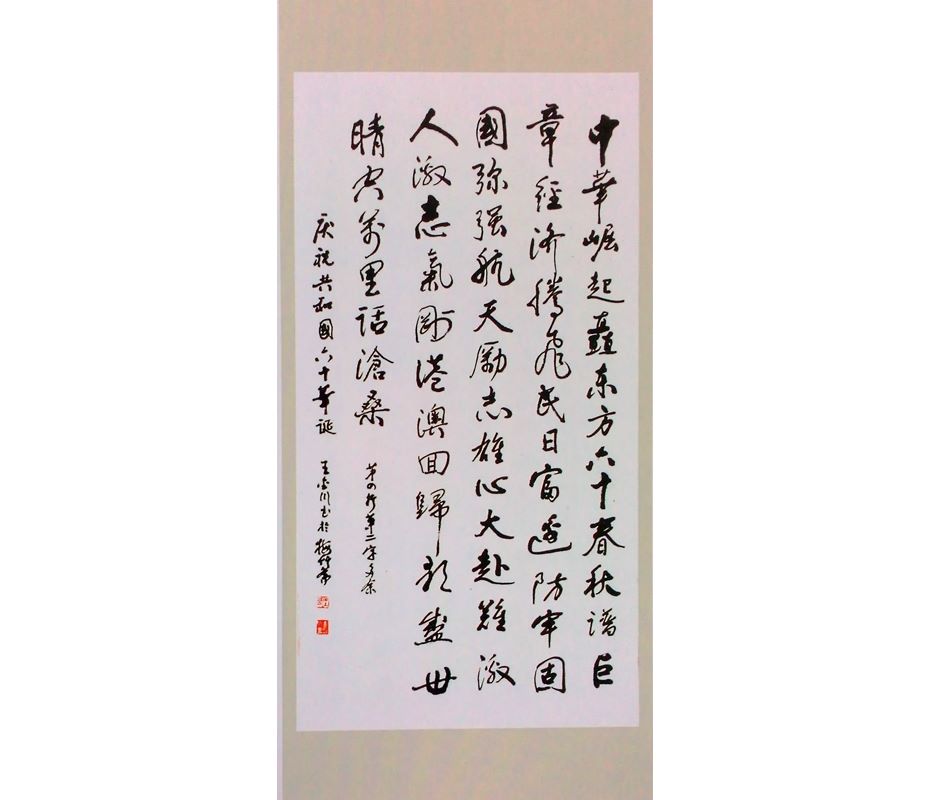 中華崛起矗东方六十春秋谱巨
章經济腾飛民日富邊防牢固
國弥强航天勵志雄心大赴難激
人激志氣剛港澳回歸歌盛世
晴空萬里話滄桑
第四行第二字多余
庆祝共和國六十華诞
王川书於梅竹斋